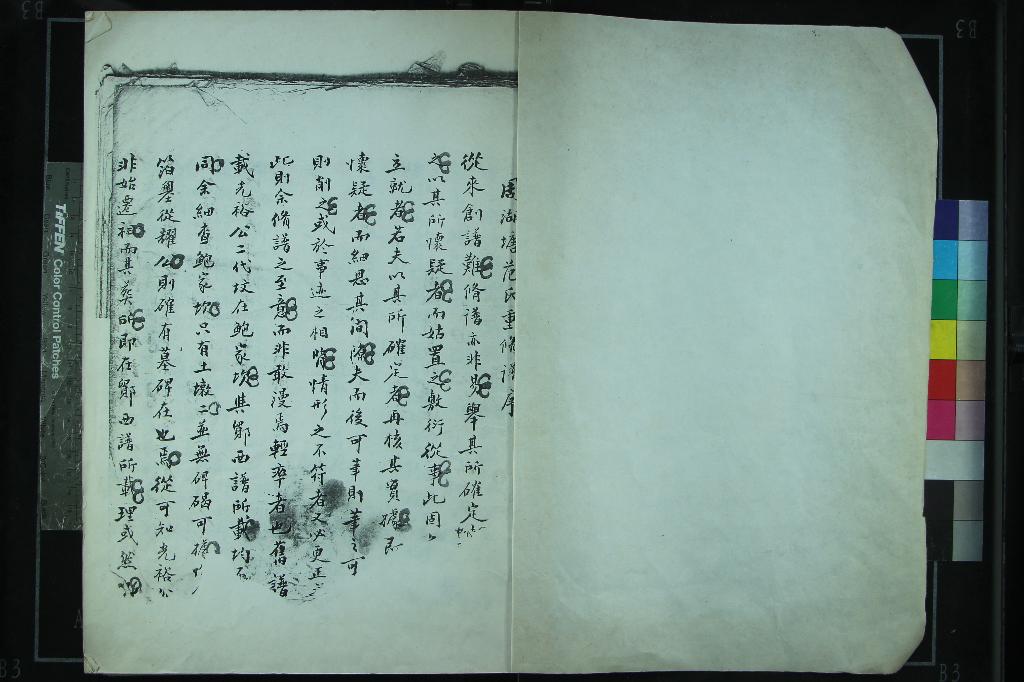 周湖塘范氏重脩譜序
從來創譜難脩譜亦非易舉其所確定
之以其所懷疑者而姑置之敷衍從事此固
立就者若夫以其所確定者再核其實據而
懷疑者而細思其間隙夫而後可筆則筆之可
則削之或於事迹之相悖情形之不符者又必更正
此則余脩譜之至意而非敢漫焉輕率者也舊譜
載光裕公二代墳在鮑家墳其鄞西譜所載均
同余細查鮑家墳只有土墩二並無碑碣可據
箔墓從耀公則確有墓碑在也焉從可知光裕公
非始遷祖而其葬所即在鄞西譜所載理或然
TIFFEN Color Control Patches
Blue
B3
B3
B3
B3